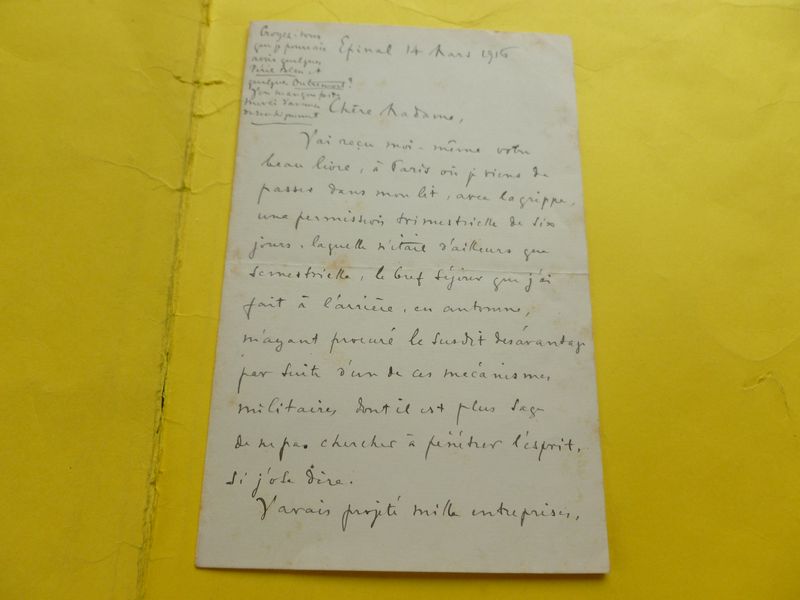 Croyez-vous
que je pourrais
avoir quelques
Père Bleu, et
quelque Outremort?
J'en manque
merci d'avance
Epinal 14 Mars 1916
Chère Madame,
J'ai reçu moi-même votre
beau livre, à Paris où je viens de
passer dans mon lit, avec la grippe,
une permission trimestrielle de six
jours, laquelle n'était d'ailleurs que
semestrielle, le bref séjour que j'ai
fait à l'arrière, en automne,
m'ayant procuré le susdit désavantage
par suite d'un de ces mécanismes
militaires dont il est plus sage
de ne pas chercher à pénétrer l'esprit,
si j'ose dire.
J'avais projeté mille entreprises,